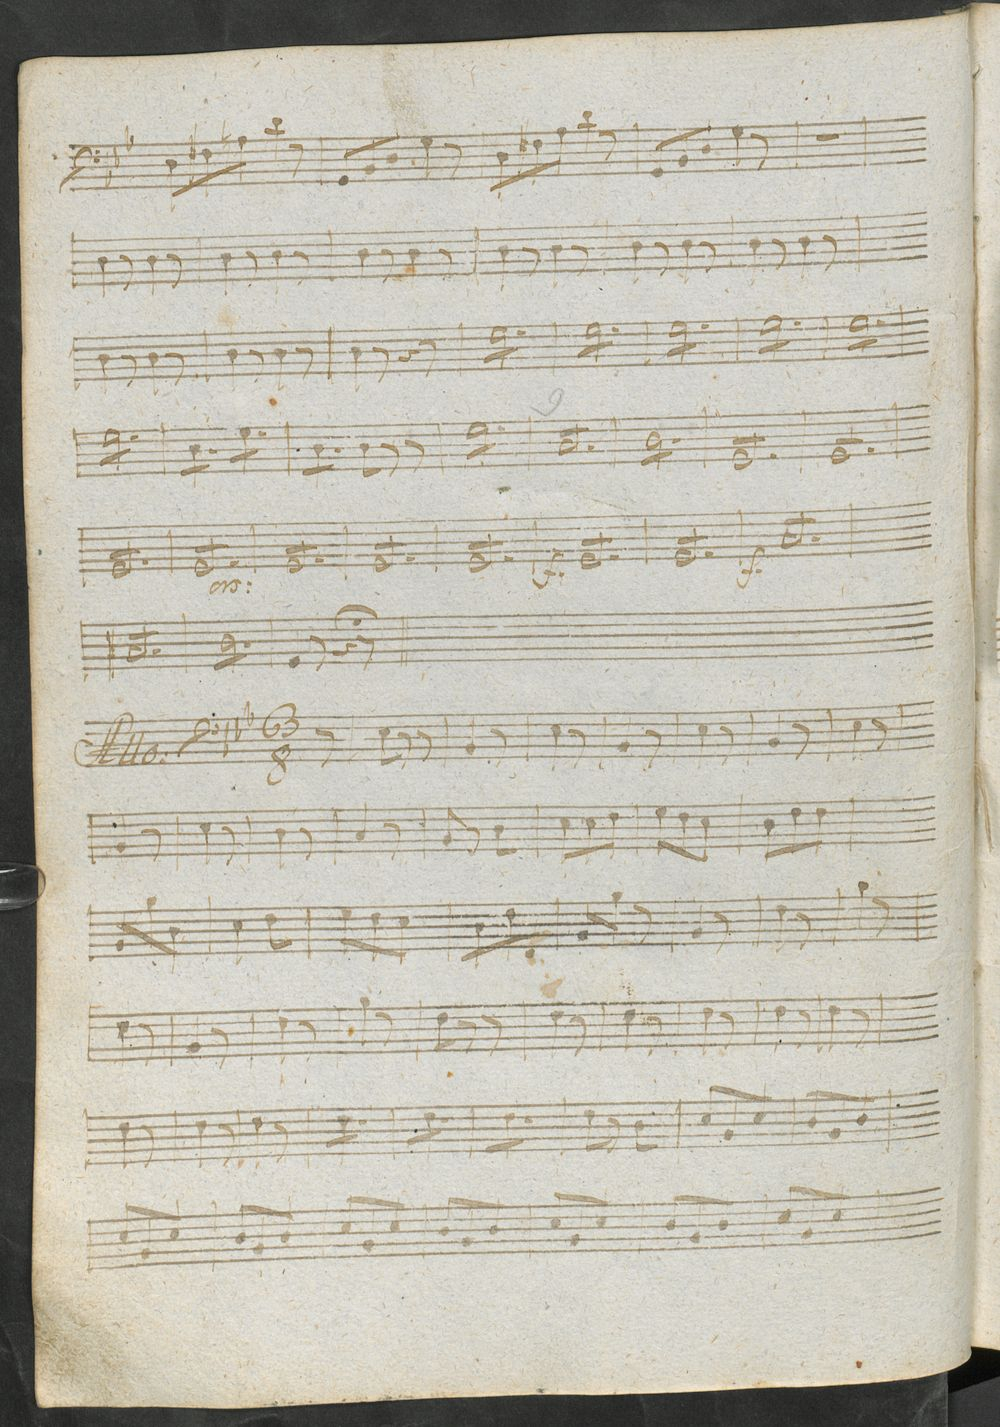 9
cres:
f. f.
Allo. 63
8